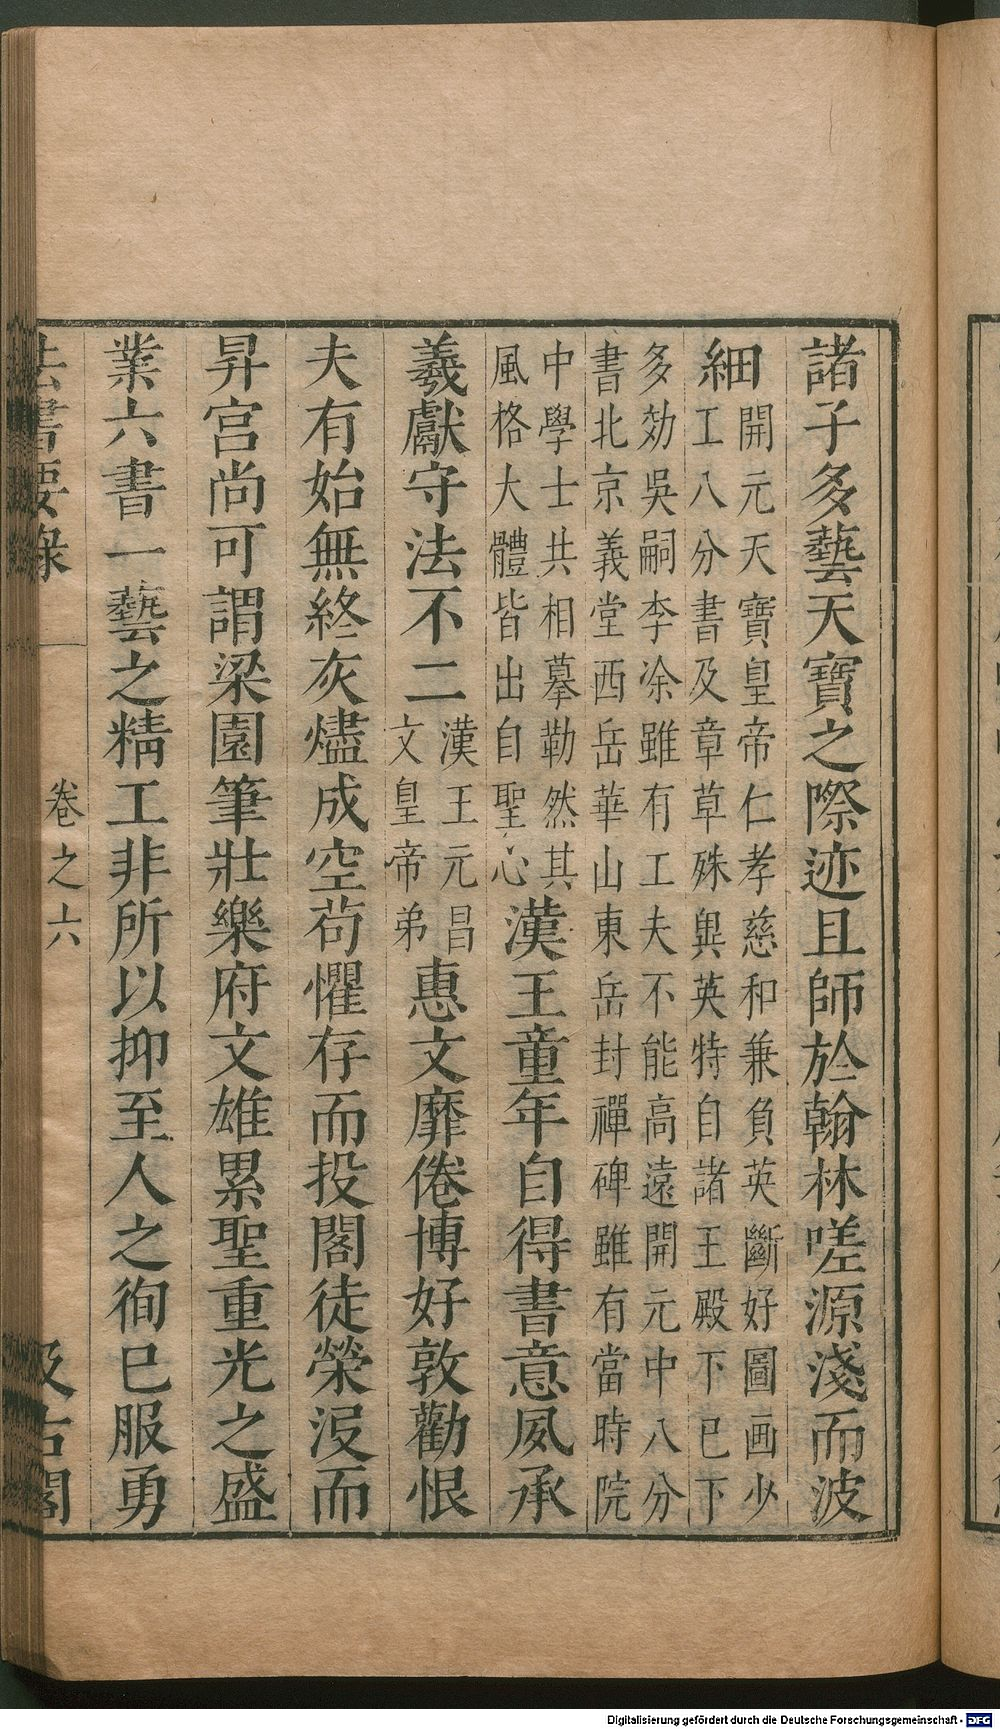 諸子多藝天寶之際迹且師於翰林嗟源淺而波
細開元天寶皇帝仁孝慈和兼負英斷好圖画少
工八分書及章草殊異英特自諸王殿下已下
多効吳嗣李凃雖有工夫不能高遠開元中八分
書北京義堂西岳華山東岳封禪碑雖有當時院
中學士共相摹勒然其
風格大體皆出自聖心漢王童年自得書意夙承
羲獻守法不二漢王元昌
文皇帝弟惠文靡倦博好敦勸恨
夫有始無終灰燼成空苟懼存而投閣徒榮沒而
昇宮尚可謂梁園筆壯樂府文雄累聖重光之盛
業六書一藝之精工非所以抑至人之徇已服勇
法書要錄 卷之六 汲古閣
Digitalisierung gefördert durch die Deutsche Forschungsgemeinschaft - DFG